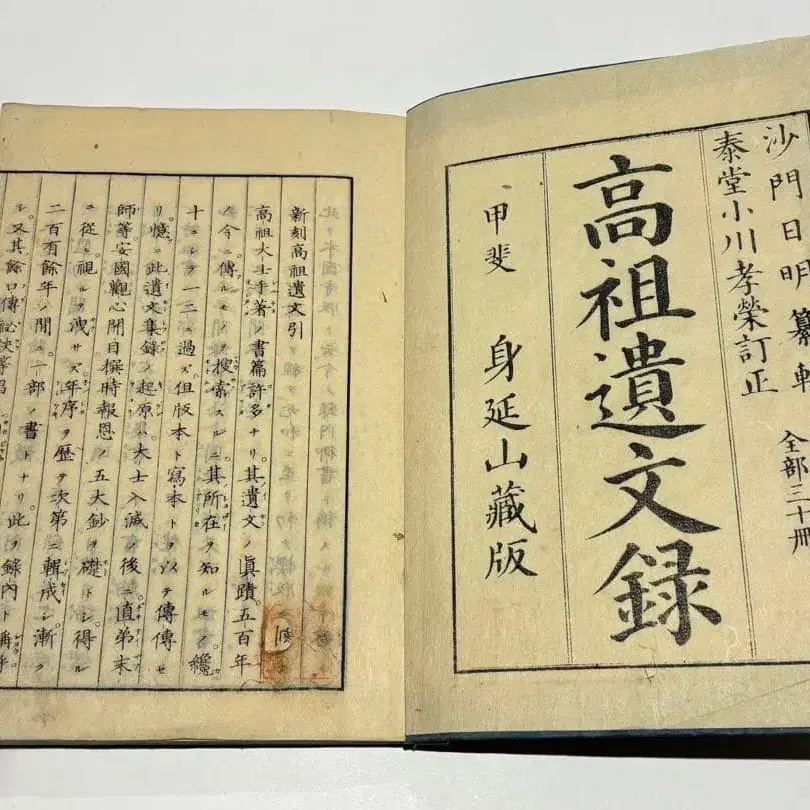 沙門日明纂輯
泰堂小川孝榮訂正
全部三十冊
高祖遺文録
甲斐 身延山藏版
新刻高祖遺文引
高祖大士手著ノ書篇許多ナリ。其遺文ノ眞蹟五百年
ノ今ニ傳ルモノヲ搜索スルニ其所在ヲ知ルモノ。纔
十ニシテ一二ニ過ズ。但版本ト寫本トヲ以テ傳傳セ
リ。憶ニ此遺文集録ノ起原ハ。大士入滅ノ後ニ。直弟末
師等。安國觀心開目撰時報恩ノ五大鈔ヲ礎トシ。得ル
ニ從ヒ視ルヲ洩サズ。年序ヲ歴テ次第ニ輯成シ。漸ク
二百有餘年ノ間ニ。一部ノ書トナリ。此ヲ録内ト稱呼
シ。又其餘口傳祕決等